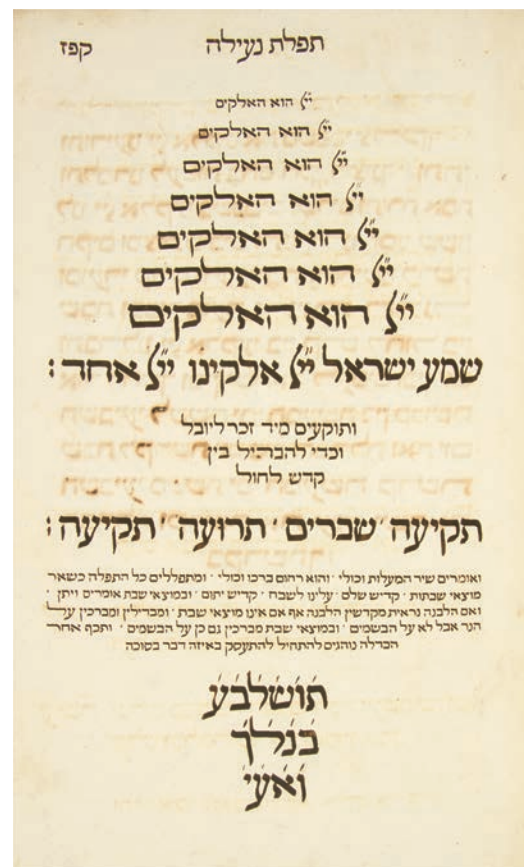 תפלת נעילה קפז
יי׳ הוא האלקים
יי׳ הוא האלקים
יי׳ הוא האלקים
יי׳ הוא האלקים
יי׳ הוא האלקים
יי׳ הוא האלקים
יי׳ הוא האלקים
שמע ישראל יי׳ אלקינו יי׳ אחד:
ותוקעים מיד זכר ליובל
וכדי להבדיל בין
קדש לחול
תקיעה ׳ שברים ׳ תרועה ׳ תקיעה:
ואומרים שיר המעלות וכולי ׳ והוא רחום ברכו וכולי ׳ ומתפללים כל התפלה כשאר
מוצאי שבתות ׳ קדיש שלם ׳ עלינו לשבח ׳ קדיש יתום ׳ ובמוצאי שבת אומרים ויתן ׳
ואם הלבנה נראית מקדשין הלבנה אף אם אינו מוצאי שבת ׳ ומבדילין ומברכין על
הנר אבל לא על הבשמים ׳ ובמוצאי שבת מברכין גם כן על הבשמים ׳ ותכף אחר
הבדלה נוהגים להתחיל להתעסק באיזה דבר בסוכה
תושלבע
בנלך
ואעי